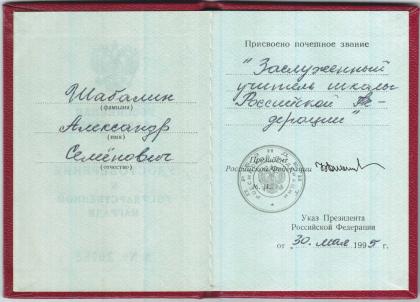 Шабалин
(фамилия)
Александр
(имя)
Семёнович
(отчество)
Присвоено почетное звание
"Заслуженный
учитель школы
Российской Фе-
дерации"
Президент
Российской Федерации
М. П.
Указ Президента
Российской Федерации
от „30. мая 1995 г.